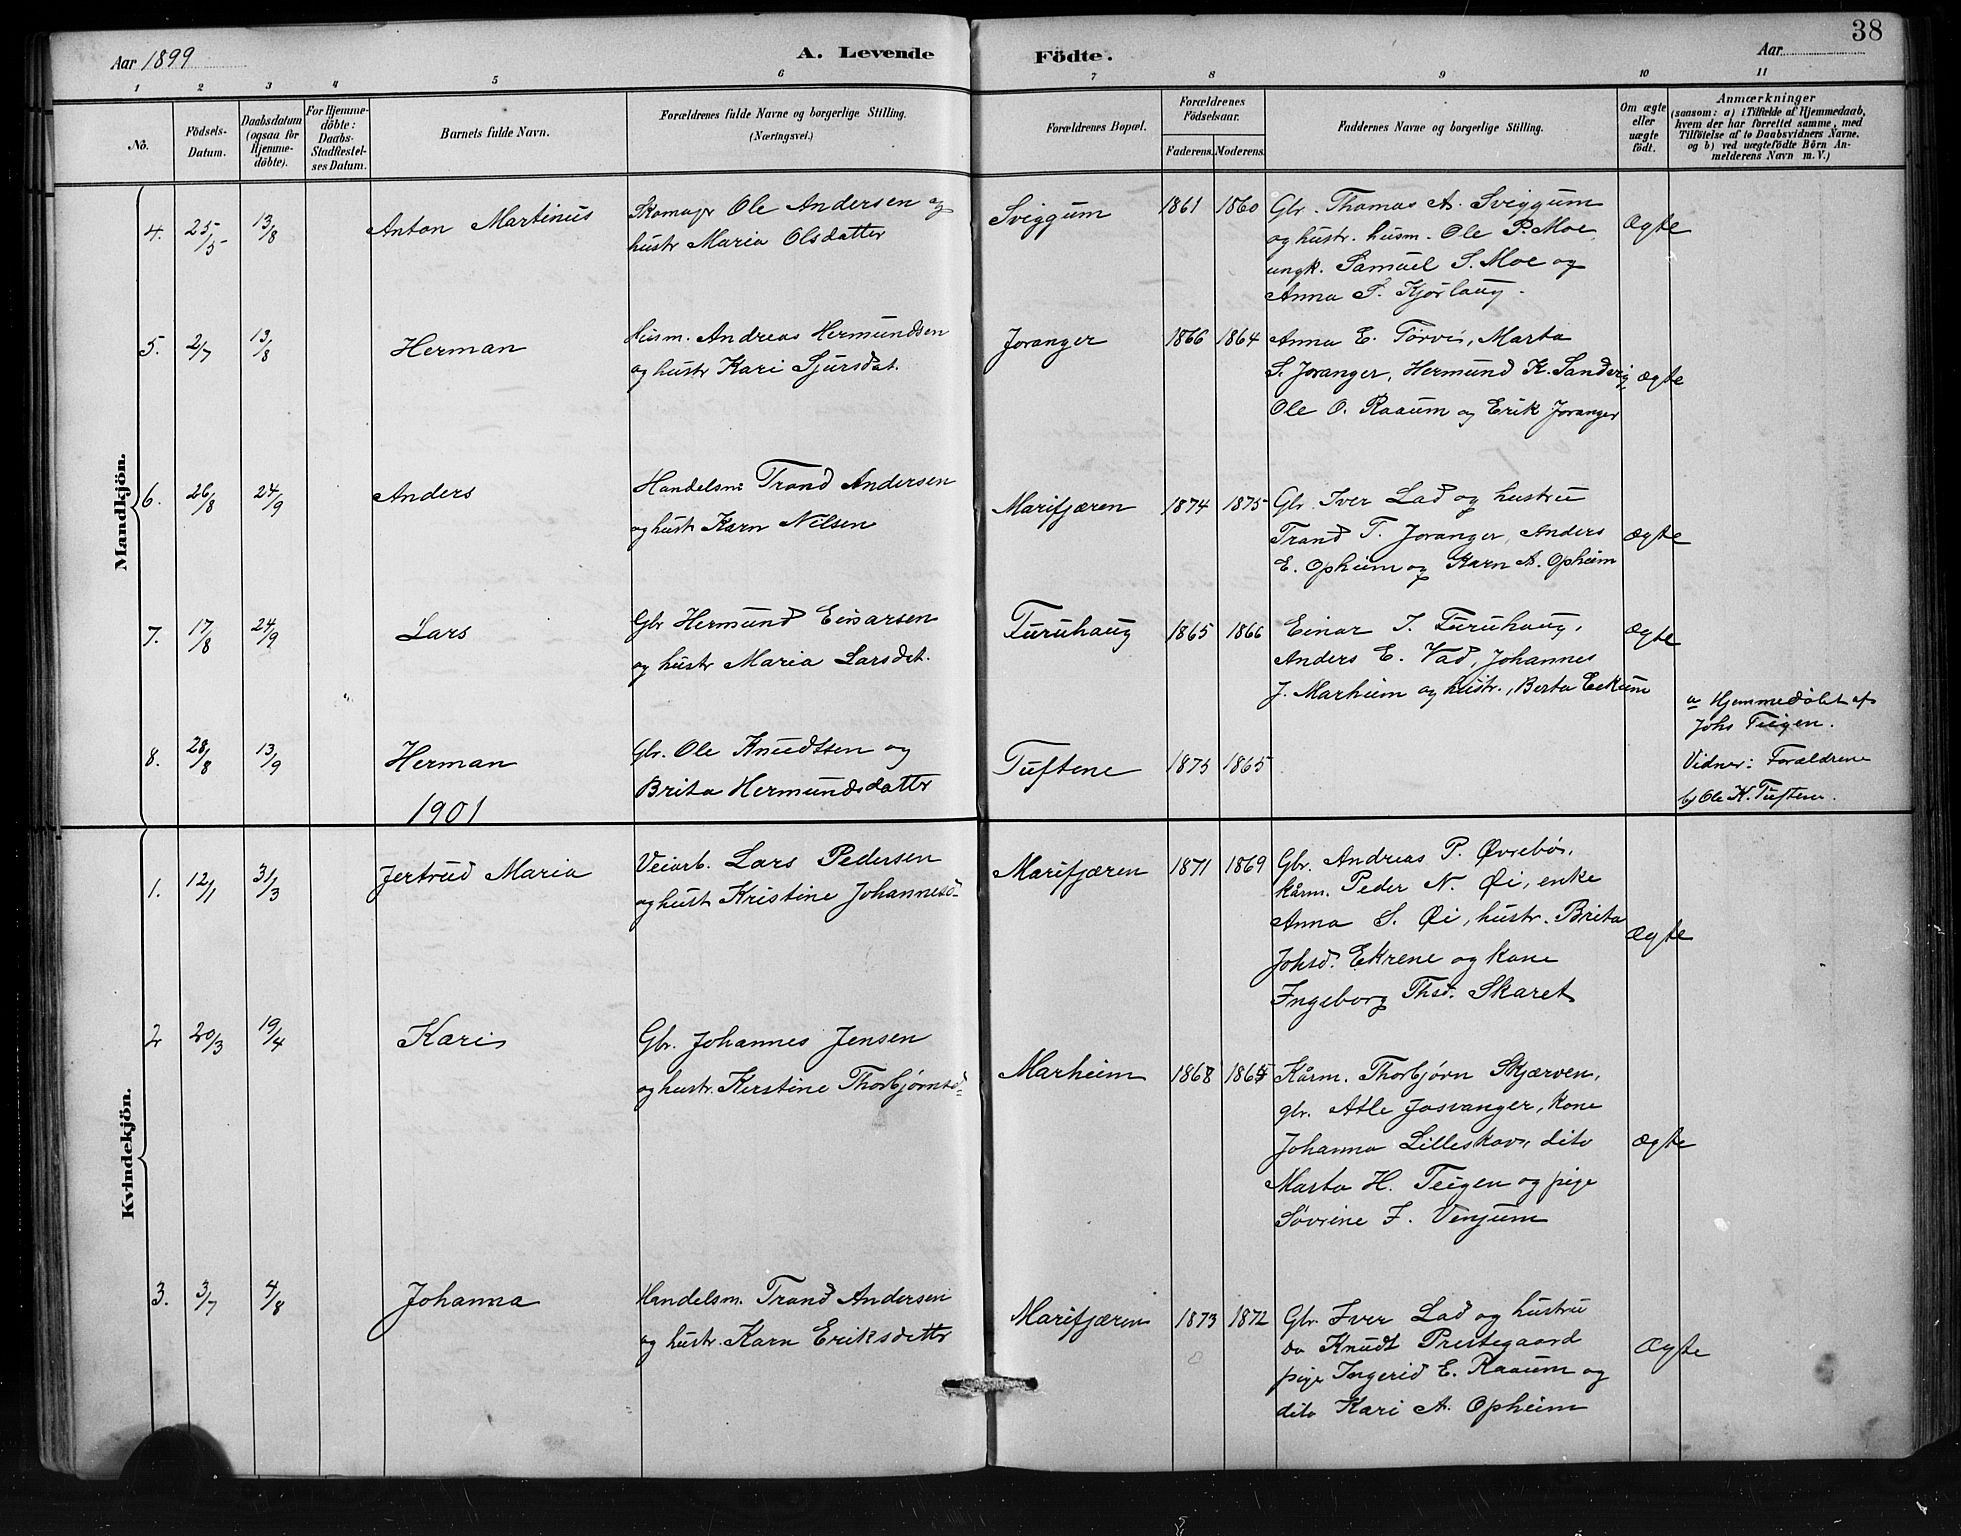 38
Aar 1899
A. Levende
Födte.
Aar
1 2 3 4 5 6 7 8 9 10 11
No.
Födsels-Datum.
Daabsdatum (ogsaa for Hjemme-döbte).
For Hjemme-döbte: Daabs-Stadfæstel-ses Datum.
Barnets fulde Navn.
Forældrenes fulde Navne og borgerlige Stilling. (Næringsvei.)
Forældrenes Bopæl.
Forældrenes Födselsaar.
Faderens. Moderens.
Faddernes Navne og borgerlige Stilling.
Om ægte eller uægte födt.
Anmærkninger
(saasom: a) i Tilfælde af Hjemmedaab, hvem der har forrettet samme, med Tilföielse af to Daabsvidners Navne, og b) ved uægtefödte Börn An-melderens Navn m.V.)
Mandkjön.
4. 25/5 13/8 Anton Martinus
Skomagr Ole Andersen og
hustr Maria Olsdatter
Sviggum 1861 1860
Gbr. Thomas A. Sviggum
og hustr. husm. Ole P. Moe,
ungk. Samuel S. Moe og
Anna S. Kjørlaug.
Ægte
5. 2/7 13/8 Herman
Husm. Andreas Hermundsen
og hustr Kari Sjursdat.
Joranger 1866 1864
Anna E. Tørvi, Marta
S. Joranger, Hermund K. Sandvig
Ole O. Raaum og Erik Joranger
Ægte
6. 26/8 24/9 Anders
Handelsm. Trond Andersen
og hustr Karn Nilsen
Marifjæren 1874 1875
Gbr. Iver Lad og hustru
Trond T. Joranger, Anders
E. Opheim og Karn A. Opheim
Ægte
7. 17/8 24/9 Lars
Gbr Hermund Einarsen
og hustr Maria Larsdat.
Furuhaug 1865 1866
Einar I. Furuhaug,
Anders E. Vad, Johannes
J. Marheim og hustr., Berta Eikum
Ægte
8. 28/8 13/9 Herman
Gbr. Ole Knudtsen og
Brita Hermundsdattr
Tuftene 1875 1865
a Hjemmedøbt af
Johs Teigen.
Vidner: Forældrene
b) Ole K. Tuftene.
1901
Kvindekjön.
1. 12/1 31/3 Jertrud Maria
Veiarb. Lars Pedersen
og hust Kristine Johannesd.
Marifjæren 1871 1869
Gbr. Andreas P. Øvrebø,
kårm. Peder N. Øi, enke
Anna S. Øi, hustr. Brita
Johsd. Ekrene og kone
Ingeborg Thsd. Skaret
Ægte
2 20/3 19/4 Kari
Gbr. Johannes Jensen
og hustr. Kerstine Thorbjørnsd.
Marheim 1868 1865
Kårm. Thorbjørn Skjærven,
gbr. Atle Josvanger, kone
Johanna Lilleskov, dito
Marta H. Teigen og pige
Søvrine F. Venjum
Ægte
3. 3/7 4/8 Johanna
Handelsm. Trond Andersen
og hustr. Karn Eriksdattr
Marifjæren 1873 1872
Gbr. Iver Lad og hustru
do Knudt Prestegaard
pige Ingerid E. Raaum og
dito Kari A. Opheim
Ægte